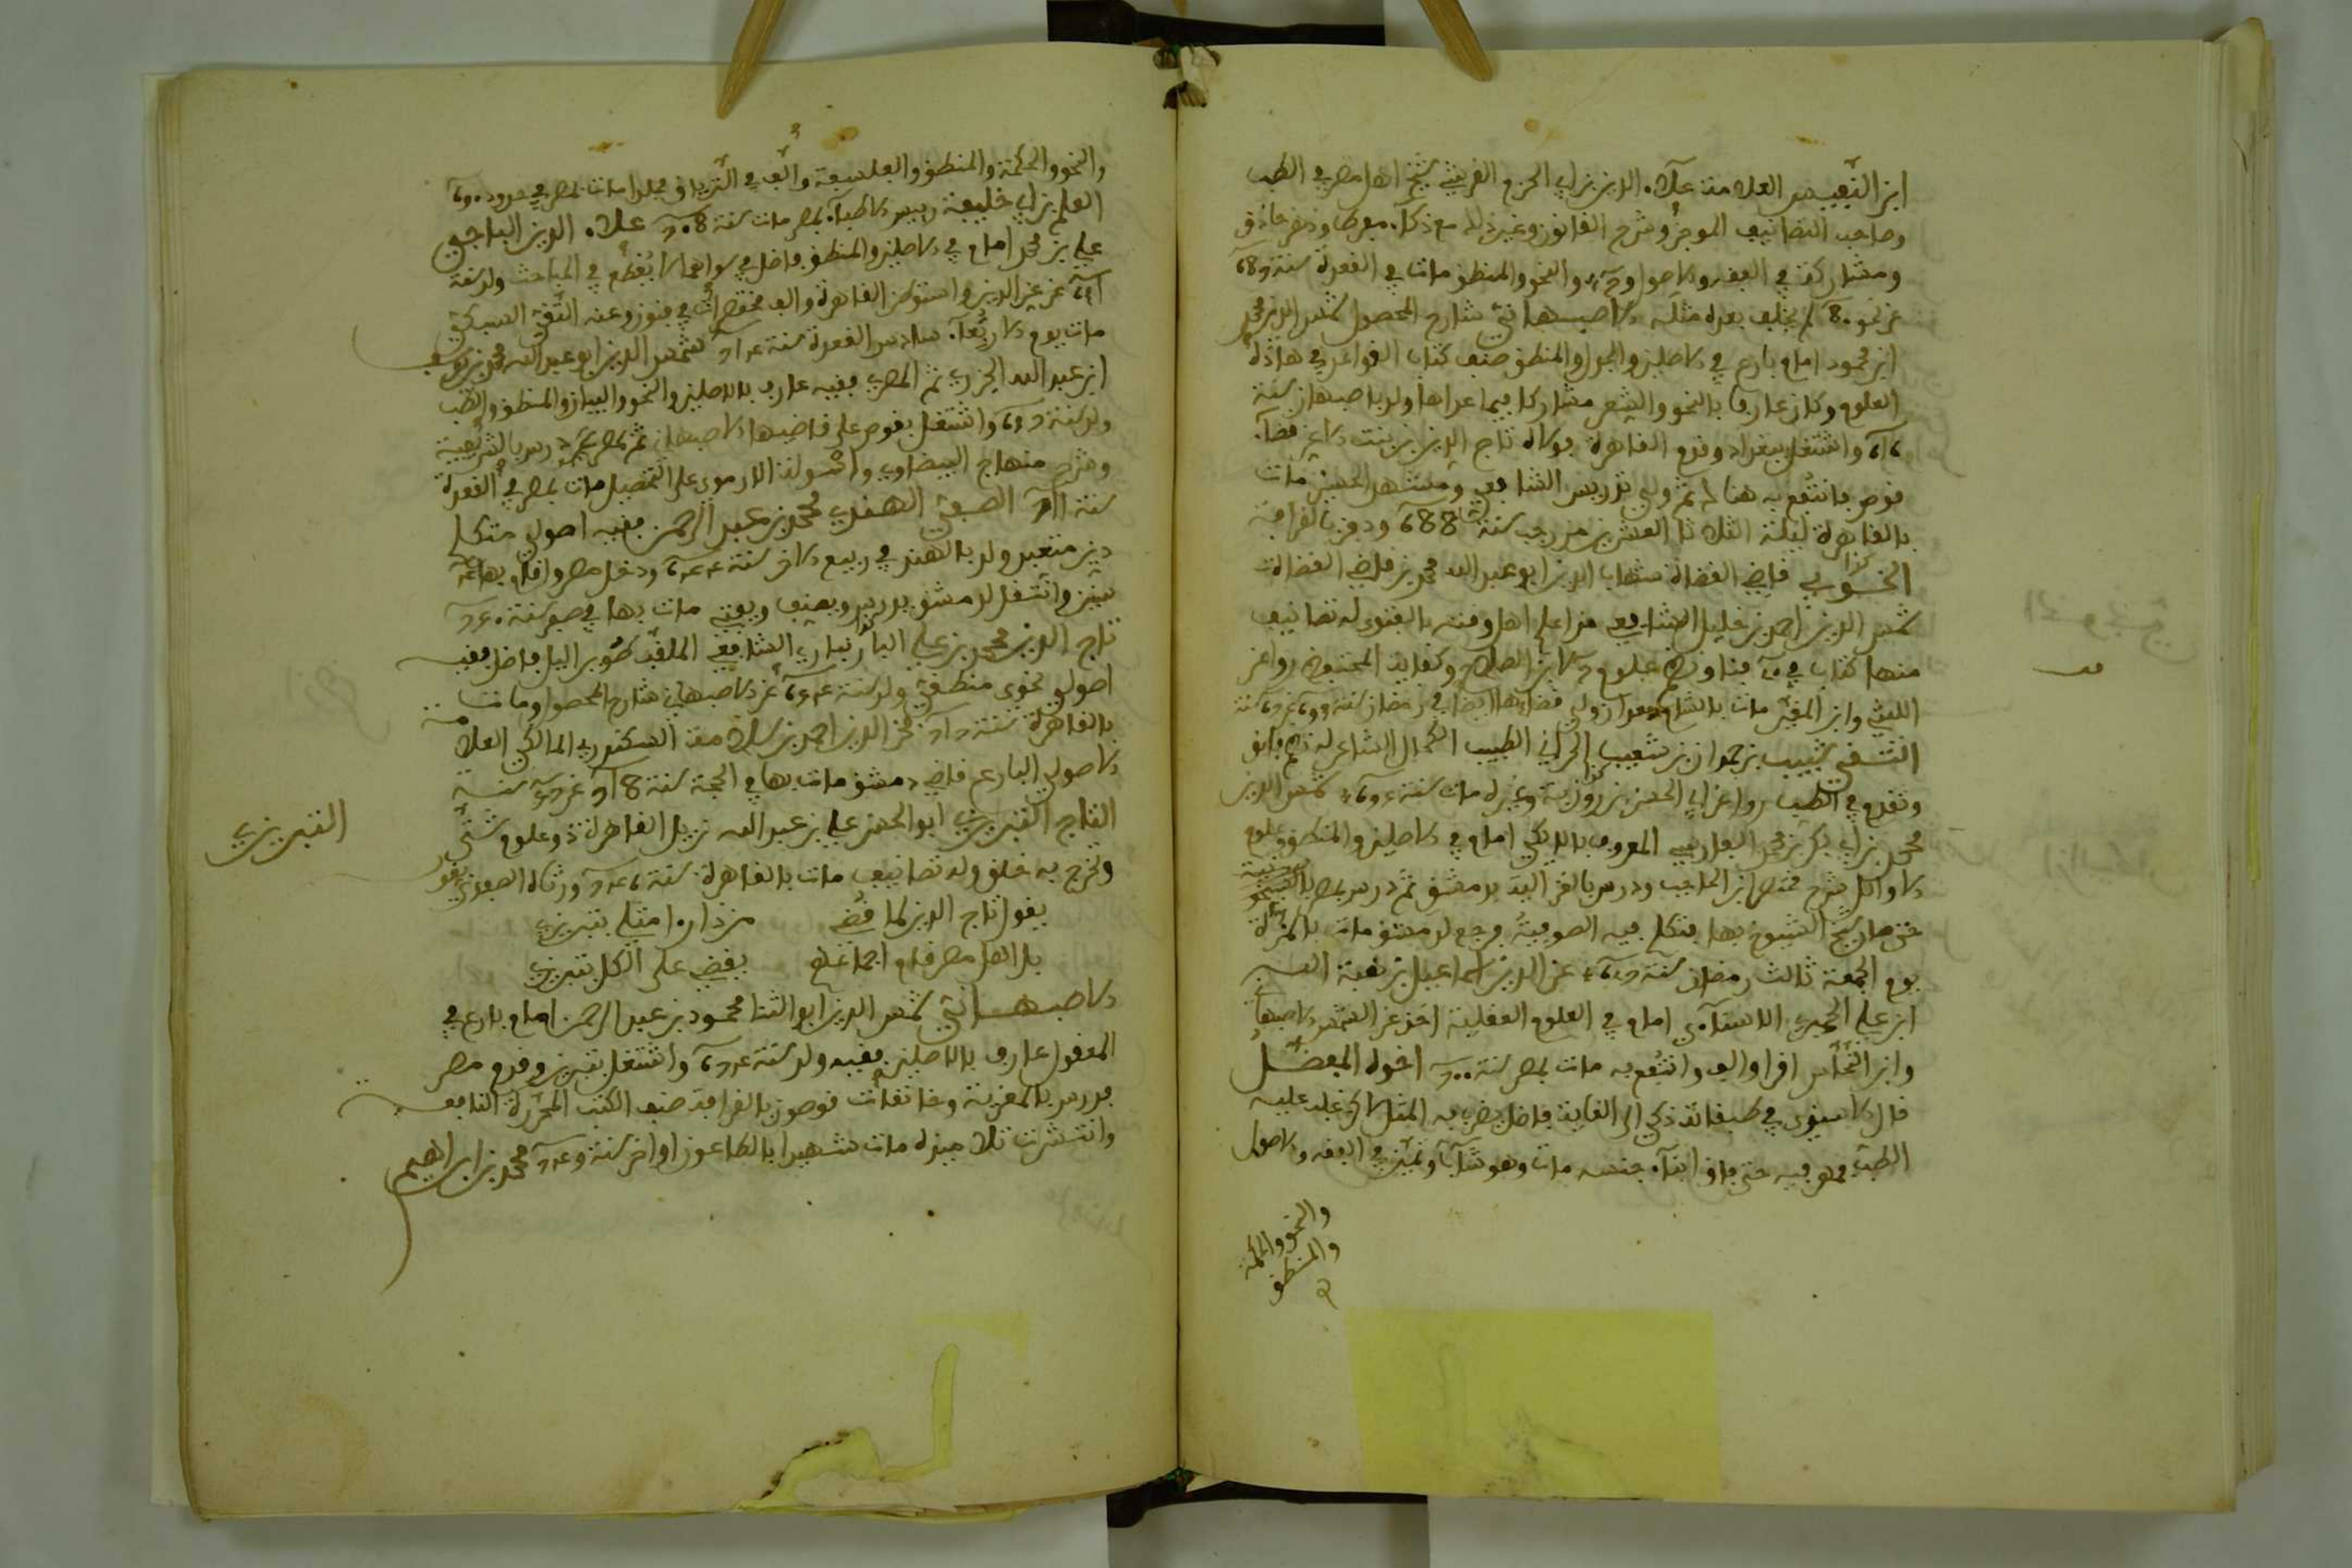 ابن النفيس العلامة علاء الدين بن ابي الحزم القرشي شيخ اهل مصر في الطب
وصاحب التصانيف الموجز وشرح القانون وغير ذلك مع ذكاء مفرط وذهن حاذق
ومشاركة في الفقه والاصول و والنحو والمنطق مات في القعدة سنة 687
عن نحو 80 لم يخلف بعده مثله الاصبهاني شارح المحصول شمس الدين محمد
ابن محمود امام بارع في الاصلين والجدل والمنطق صنف كتاب القواعد في هاذه
العلوم وكان عارفا بالنحو والشعر مشاركا فيما عداها ولد باصبهان سنة
616 واشتغل ببغداد وقدم القاهرة فولاه تاج الدين بن بنت الاعز قضاء
قوص فانتفع به هناك ثم ولي تدريس الشافعي ومشهد الحسين مات
بالقاهرة ليلة الثلاثا العشرين من رجب سنة 688 ودفن بالقرافة
الخويي قاضي القضاة شهاب الدين ابو عبد الله محمد بن قاضي القضاة
شمس الدين احمد بن خليل الشافعي من اعلم اهل وقته بالفتوى له تصانيف
منها كتاب في فنا ونظم علوم لابن الصلاح وكفاية المتحفظ روى عن
اللتي وابن المقير مات بالشام بعد ان ولي قضاءها ايضا في رمضان سنة
التقي شبيب بن حمدان بن شعيب الحراني الطبيب الكحال الشاعر له نظم فائق
وتقدم في الطب روى عن ابي الحسن بن روزبة وغيره مات سنة شمس الدين
محمد بن ابي بكر بن محمد الفارسي المعروف بالايكي امام في الاصلين والمنطق وعلوم
الاوائل شرح مختصر ابن الحاجب ودرس بالغزالية بدمشق ثم درس بمصر
حتى صار شيخ الشيوخ بها فتكلم فيه الصوفية فرجع لدمشق مات بالمزة
يوم الجمعة ثالث رمضان سنة عز الدين اسماعيل بن هبة الله
ابن علي الحميري الاسنائي امام في العلوم العقلية اخذ عن الشمس الاصبهاني
وابن النحاس اقرا والف وانتفع به مات بمصر سنة 700 اخوه المفضل
قال الاسنوي في طبقاته ذكي الى الغاية فاضل يضرب به المثل لاكن غلب عليه
الطب فمهر فيه حتى فاق ابناء جنسه مات وهو شاب وتميز في الفقه والاصول
والنحو والحكمة
والمنطق
والنحو والحكمة والمنطق والفلسفة والف في الترياق مجلدا مات بمصر في حدود 690
العلم بن ابي خليفة رييس الاطباء بمصر مات سنة 708 علاء الدين الباجي
علي بن محمد امام في الاصلين والمنطق فاضل في سواهما لا يقطع في المباحث ولد سنة
عن عز الدين واستوطن القاهرة والف مختصرات في فنون وعنه التقي السبكي
مات يوم الاربعاء سادس القعدة سنة 714 شمس الدين ابو عبد الله محمد بن يوسف
ابن عبد الله الجزري ثم المصري فقيه عارف بالاصلين والنحو والبيان والمنطق والطب
ولد سنة واشتغل بقوص على قاضيها الاصبهاني ثم بمصر درس بالشريفية
وشرح منهاج البيضاوي واسولة الارموي على التحصيل مات بمصر في القعدة
سنة 711 الصفي الهندي محمد بن عبد الرحمن فقيه اصولي متكلم
دين متعبد ولد بالهند في ربيع الاخر سنة 644 ودخل مصر واقام بها
سنين وانتقل لدمشق يدرس ويصنف ويفتي مات بها في صفر سنة
تاج الدين محمد بن علي البارنباري الشافعي الملقب طوير الليل فاضل فقيه
اصولي نحوي منطقي ولد سنة عن الاصبهاني شارح المحصول ومات
بالقاهرة سنة 717 فخر الدين احمد بن سلامة السكندري المالكي العلامة
الاصولي البارع قاضي دمشق مات بها في الحجة سنة 718 عن سنة
التاج التبريزي ابو الحسن علي بن عبد الله نزيل القاهرة ذو علوم شتى
وتخرج به خلق وله تصانيف مات بالقاهرة سنة 746 ورثاه الصفدي بقوله
يقول تاج الدين لما قضى من ذا را مثلي بتبريزي
بل اهل مصر قام اجماعهم يقضي على الكل بتبريزي
الاصبهاني شمس الدين ابو الثنا محمود بن عبد الرحمن امام بارع في
المعقول عارف بالاصلين فقيه ولد سنة 674 واشتغل بتبريز وقدم مصر
فدرس بالمعزية وخانقات قوصون بالقرافة صنف الكتب المحررة النافعة
وانتشرت تلاميذه مات شهيدا بالطاعون اواخر سنة 749 محمد بن ابراهيم
التبريزي